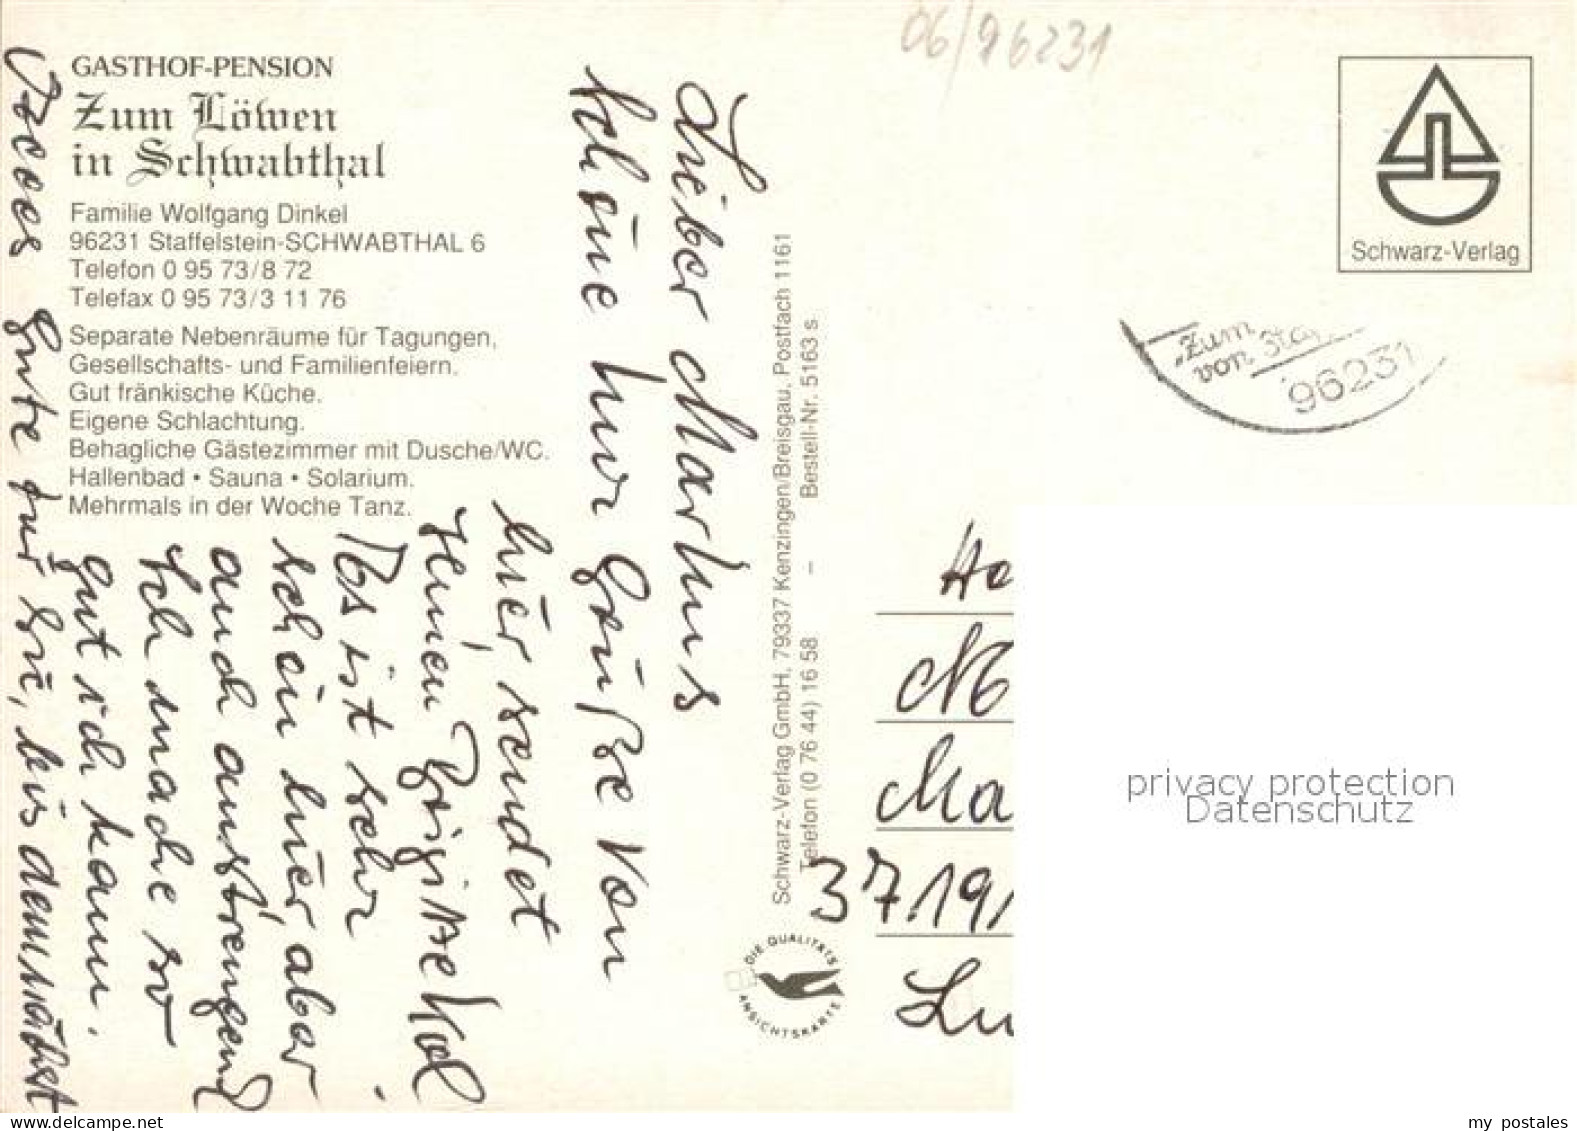 06/96231
GASTHOF-PENSION
Zum Löwen
in Schwabthal
Familie Wolfgang Dinkel
96231 Staffelstein-SCHWABTHAL 6
Telefon 0 95 73/8 72
Telefax 0 95 73/3 11 76
Separate Nebenräume für Tagungen,
Gesellschafts- und Familienfeiern.
Gut fränkische Küche.
Eigene Schlachtung.
Behagliche Gästezimmer mit Dusche/WC.
Hallenbad • Sauna • Solarium.
Mehrmals in der Woche Tanz.
Lieber Markus
schöne Kur Grüße von
hier sendet
Brigitte
Es ist sehr
schön hier, aber
auch anstrengend
Ich mache so
gut ich kann.
Gute für Sie, bis demnächst
Schwarz-Verlag GmbH, 79337 Kenzingen/Breisgau, Postfach 1161
Telefon (0 76 44) 16 58 – Bestell-Nr. 5163 s
DIE QUALITÄTS
ANSICHTSKARTE
Schwarz-Verlag
"Zum
von Staf
96231
He
Ma
37191
Lu
privacy protection
Datenschutz
delcampe.net
my postales